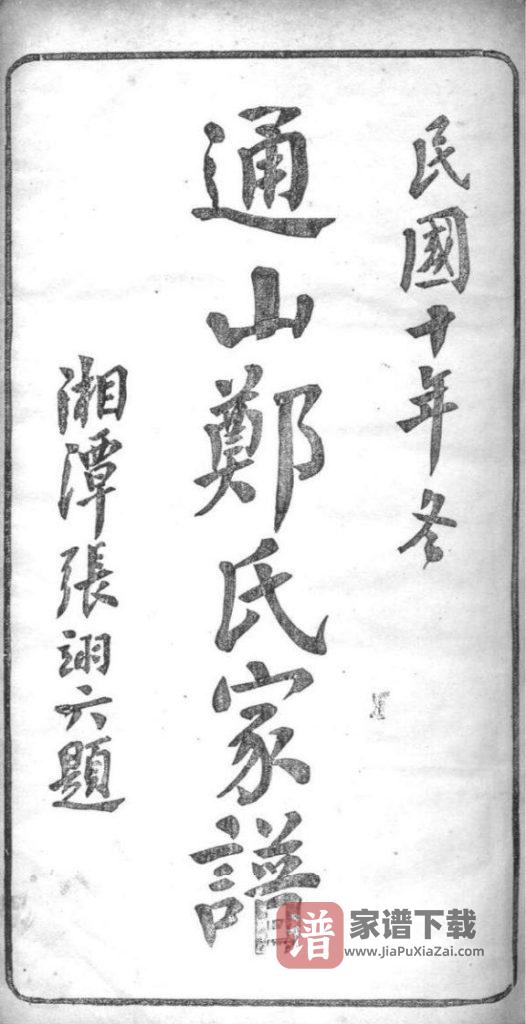 民國十年冬
通山鄭氏家譜
湘潭張翊六題
谱 家谱下载
www.JiaPuXiaZai.com